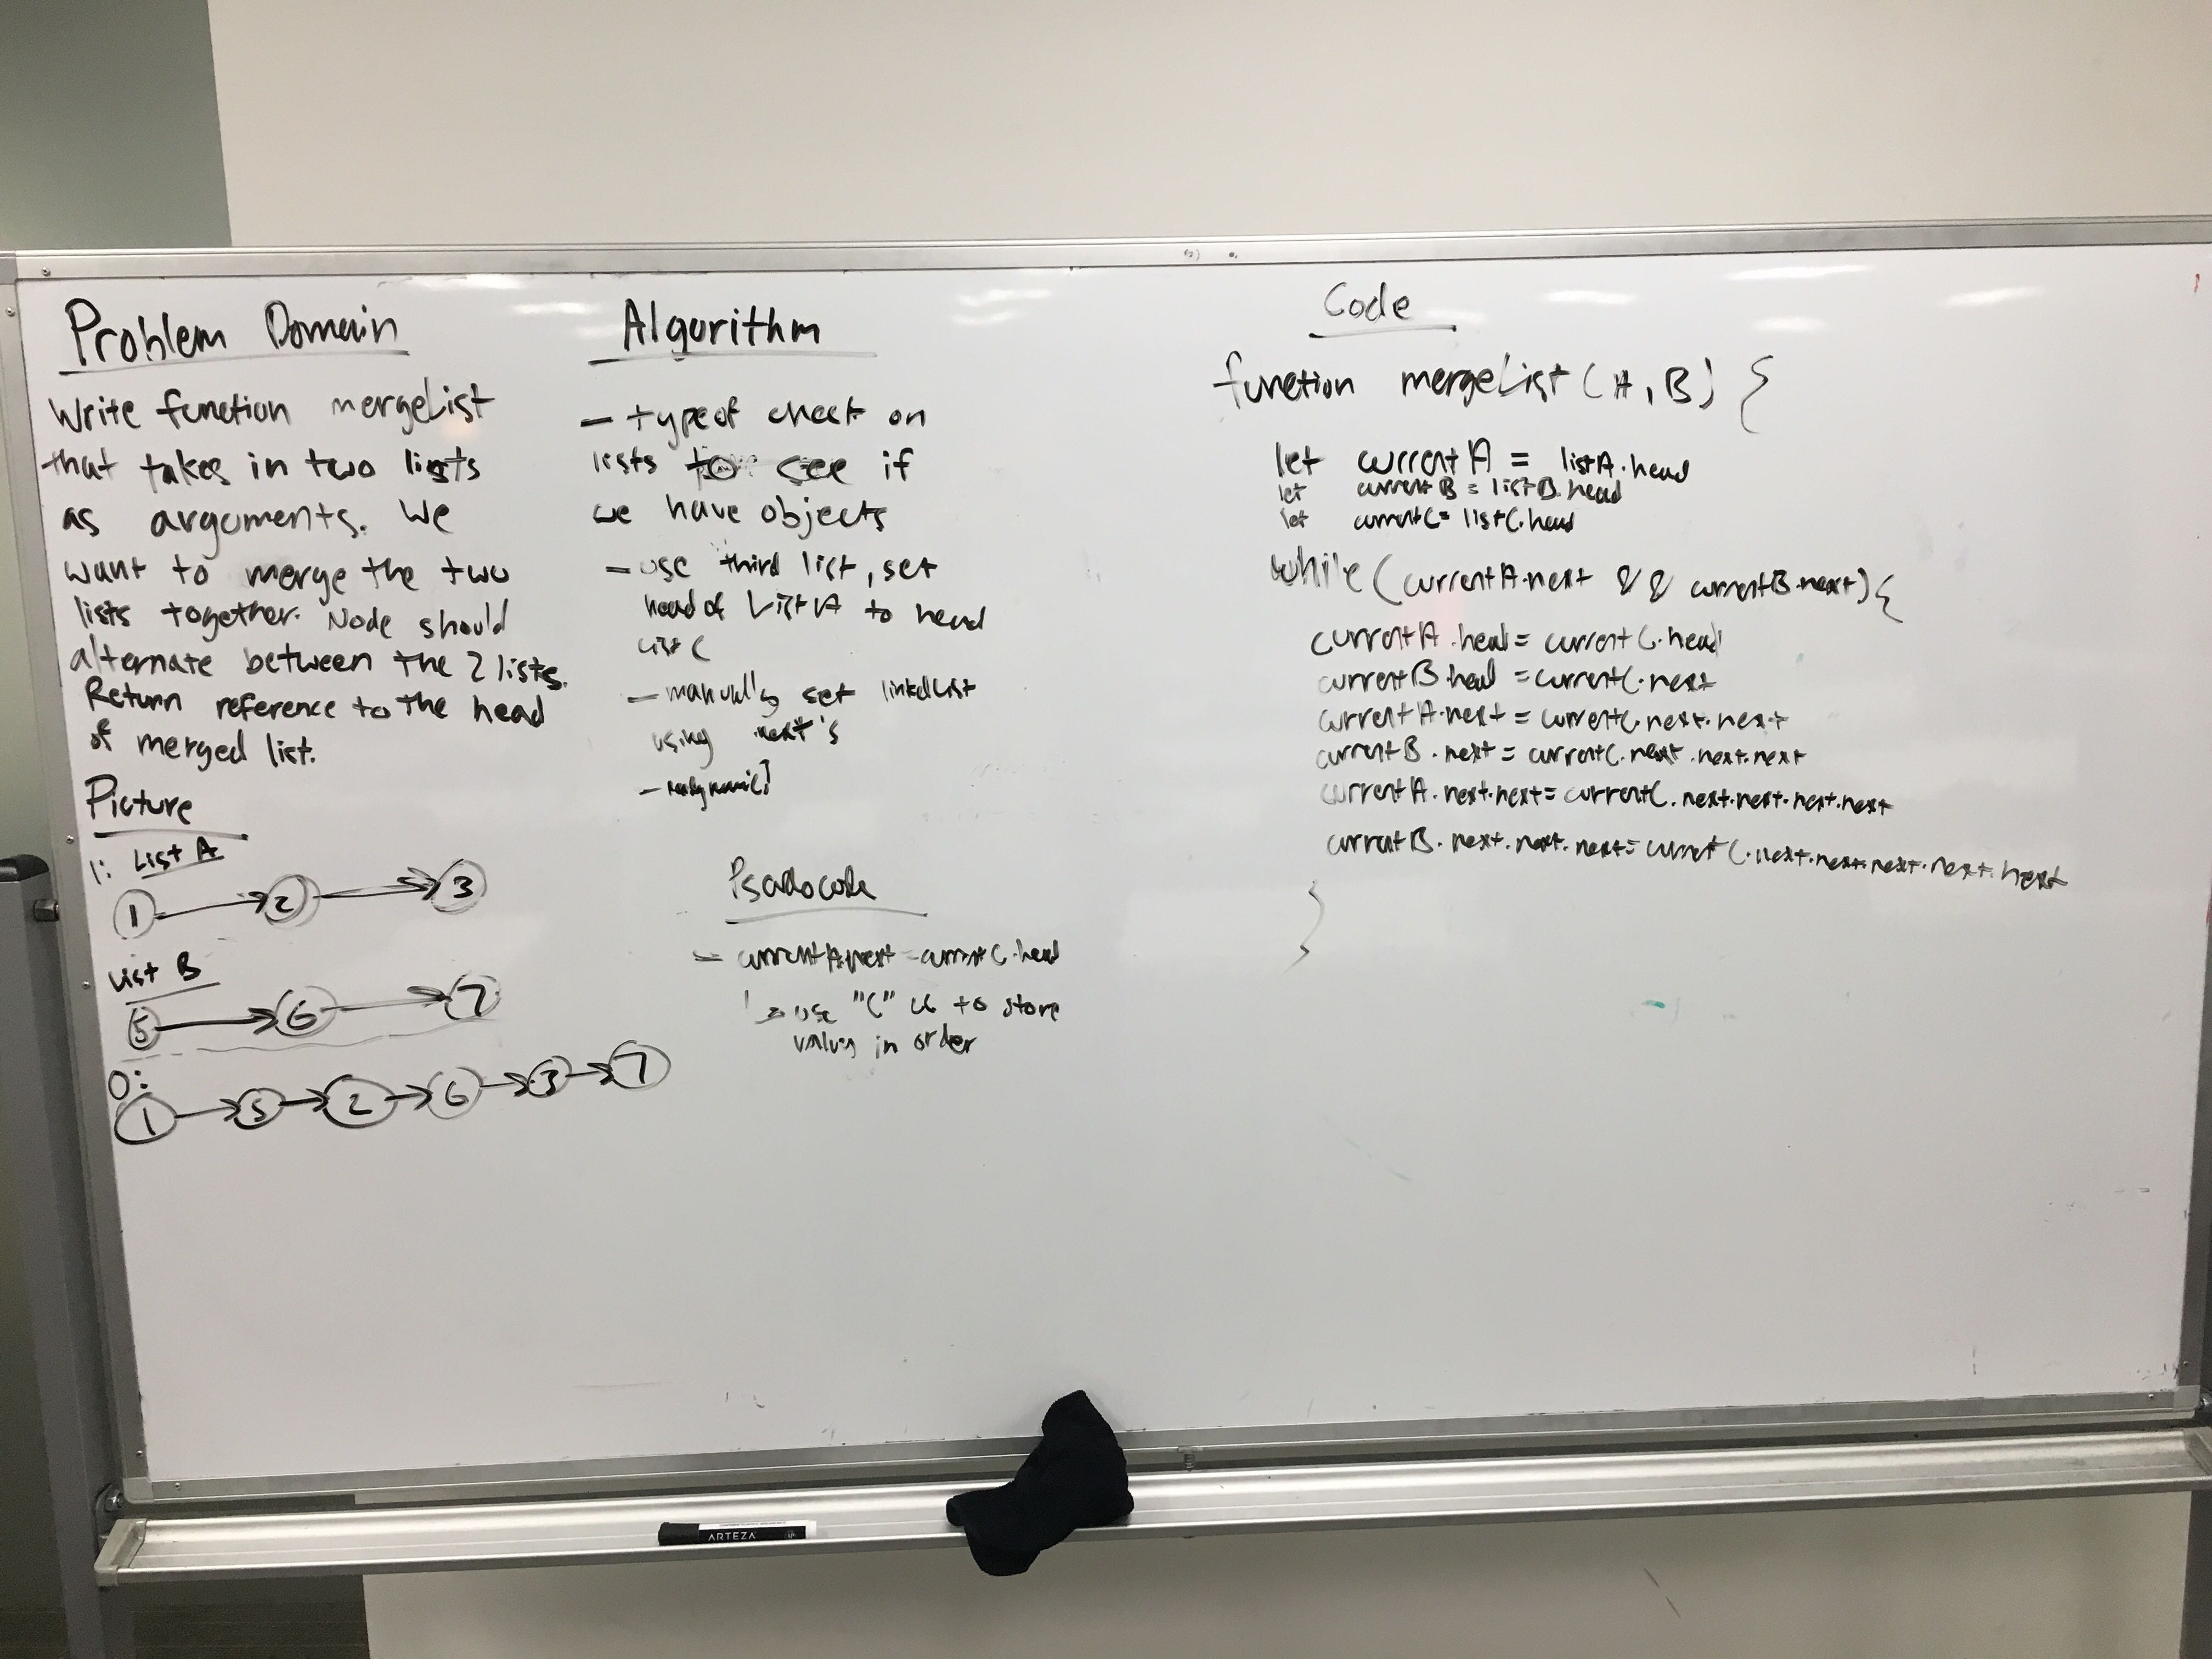 Problem Domain
Write function mergeList
that takes in two lists
as arguments. We
want to merge the two
lists together. Node should
alternate between the 2 lists.
Return reference to the head
of merged list.
Picture
I: List A
1 2 3
List B
5 6 7
O:
1 5 2 6 3 7
Algorithm
- typeof check on
lists to see if
we have objects
- use third list, set
head of List A to head
List C
- manually set linkdList
using next's
Psadocode
- currentA.next = currentC.head
use "C" to store
values in order
Code
function mergeList (A, B) {
let currentA = listA.head
let currentB = listB.head
let currentC = listC.head
while (currentA.next && currentB.next) {
currentA.head = currentC.head
currentB.head = currentC.next
currentA.next = currentC.next.next
currentB.next = currentC.next.next.next
currentA.next.next = currentC.next.next.next.next
currentB.next.next.next = currentC.next.next.next.next.next
}
ARTEZA